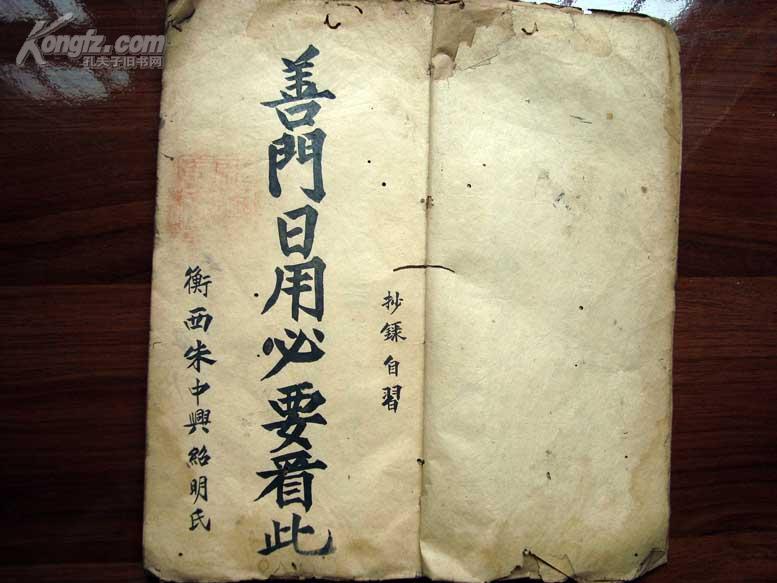 Kongfz.com
孔夫子旧书网
抄錄自習
善門日用必要看此
衡西朱中興紹明氏